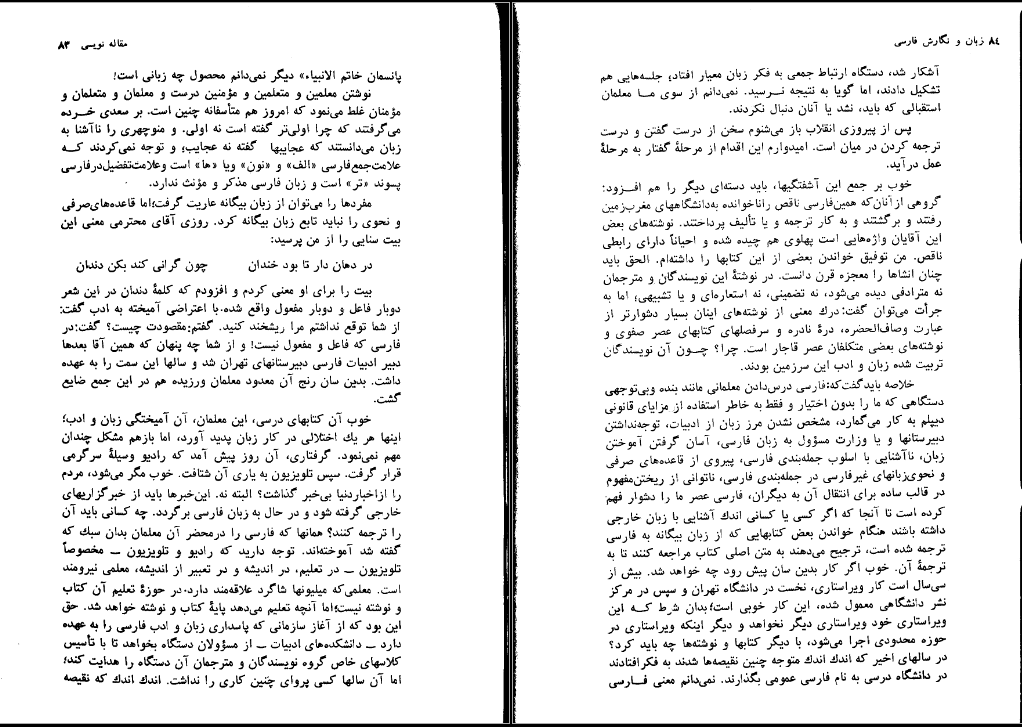 مقاله نویسی ۸۳
پانسمان خاتم الانبیاء» دیگر نمی‌دانم محصول چه زبانی است!
نوشتن معلمین و متعلمین و مؤمنین درست و معلمان و متعلمان و
مؤمنان غلط می‌نمود که امروز هم متأسفانه چنین است. بر سعدی خـرده
می‌گرفتند که چرا اولی‌تر گفته است نه اولی. و منوچهری را ناآشنا به
زبان می‌دانستند که عجایبها گفته نه عجایب؛ و توجه نمی‌کردند کـه
علامت‌جمع‌فارسی «الف» و «نون» ویا «ها» است وعلامت‌تفضیل‌درفارسی
پسوند «تر» است و زبان فارسی مذکر و مؤنث ندارد.
مفردها را می‌توان از زبان بیگانه عاریت گرفت؛اما قاعده‌های‌صرفی
و نحوی را نباید تابع زبان بیگانه کرد. روزی آقای محترمی معنی این
بیت سنایی را از من پرسید:
در دهان دار تا بود خندان چون گرانی کند بکن دندان
بیت را برای او معنی کردم و افزودم که کلمهٔ دندان در این شعر
دوبار فاعل و دوبار مفعول واقع شده.با اعتراضی آمیخته به ادب گفت:
از شما توقع نداشتم مرا ریشخند کنید. گفتم:مقصودت چیست؟ گفت:در
فارسی که فاعل و مفعول نیست! و از شما چه پنهان که همین آقا بعدها
دبیر ادبیات فارسی دبیرستانهای تهران شد و سالها این سمت را به عهده
داشت. بدین سان رنج آن معدود معلمان ورزیده هم در این جمع ضایع
گشت.
خوب آن کتابهای درسی، این معلمان، آن آمیختگی زبان و ادب؛
اینها هر یك اختلالی در کار زبان پدید آورد، اما بازهم مشکل چندان
مهم نمی‌نمود. گرفتاری، آن روز پیش آمد که رادیو وسیلهٔ سرگرمی
قرار گرفت. سپس تلویزیون به یاری آن شتافت. خوب مگر می‌شود، مردم
را ازاخباردنیا بی‌خبر گذاشت؟ البته نه. این‌خبرها باید از خبرگزاریهای
خارجی گرفته شود و در حال به زبان فارسی برگردد. چه کسانی باید آن
را ترجمه کنند؟ همانها که فارسی را درمحضر آن معلمان بدان سبك که
گفته شد آموخته‌اند. توجه دارید که رادیو و تلویزیون ــ مخصوصاً
تلویزیون ــ در تعلیم، در اندیشه و در تعبیر از اندیشه، معلمی نیرومند
است. معلمی‌که میلیونها شاگرد علاقه‌مند دارد.در حوزهٔ تعلیم آن کتاب
و نوشته نیست؛اما آنچه تعلیم می‌دهد پایهٔ کتاب و نوشته خواهد شد. حق
این بود که از آغاز سازمانی که پاسداری زبان و ادب فارسی را به عهده
دارد ــ دانشکده‌های ادبیات ــ از مسؤولان دستگاه بخواهد تا با تأسیس
کلاسهای خاص گروه نویسندگان و مترجمان آن دستگاه را هدایت کند؛
اما آن سالها کسی پروای چنین کاری را نداشت. اندك اندك که نقیصه
۸٤ زبان و نگارش فارسی
آشکار شد، دستگاه ارتباط جمعی به فکر زبان معیار افتاد؛ جلسه‌هایی هم
تشکیل دادند، اما گویا به نتیجه نـرسید. نمی‌دانم از سوی مـا معلمان
استقبالی که باید، نشد یا آنان دنبال نکردند.
پس از پیروزی انقلاب باز می‌شنوم سخن از درست گفتن و درست
ترجمه کردن در میان است. امیدوارم این اقدام از مرحلهٔ گفتار به مرحلهٔ
عمل درآید.
خوب بر جمع این آشفتگیها، باید دسته‌ای دیگر را هم افـزود:
گروهی از آنان‌که همین‌فارسی ناقص راناخوانده به‌دانشگاههای مغرب‌زمین
رفتند و برگشتند و به کار ترجمه و یا تألیف پرداختند. نوشته‌های بعض
این آقایان واژه‌هایی است پهلوی هم چیده شده و احیاناً دارای رابطی
ناقص. من توفیق خواندن بعضی از این کتابها را داشته‌ام. الحق باید
چنان انشاها را معجزه قرن دانست. در نوشتهٔ این نویسندگان و مترجمان
نه مترادفی دیده می‌شود، نه تضمینی، نه استعاره‌ای و یا تشبیهی؛ اما به
جرأت می‌توان گفت:درك معنی از نوشته‌های اینان بسیار دشوارتر از
عبارت وصاف‌الحضره، درهٔ نادره و سرفصلهای کتابهای عصر صفوی و
نوشته‌های بعضی متکلفان عصر قاجار است. چرا؟ چـون آن نویسندگان
تربیت شده زبان و ادب این سرزمین بودند.
خلاصه بایدگفت‌که:فارسی درس‌دادن معلمانی مانند بنده وبی‌توجهی
دستگاهی که ما را بدون اختیار و فقط به خاطر استفاده از مزایای قانونی
دیپلم به کار می‌گمارد، مشخص نشدن مرز زبان از ادبیات، توجه‌نداشتن
دبیرستانها و یا وزارت مسؤول به زبان فارسی، آسان گرفتن آموختن
زبان، ناآشنایی با اسلوب جمله‌بندی فارسی، پیروی از قاعده‌های صرفی
و نحوی‌زبانهای غیرفارسی در جمله‌بندی فارسی، ناتوانی از ریختن‌مفهوم
در قالب ساده برای انتقال آن به دیگران، فارسی عصر ما را دشوار فهم
کرده است تا آنجا که اگر کسی یا کسانی اندك آشنایی با زبان خارجی
داشته باشند هنگام خواندن بعض کتابهایی که از زبان بیگانه به فارسی
ترجمه شده است، ترجیح می‌دهند به متن اصلی کتاب مراجعه کنند تا به
ترجمهٔ آن. خوب اگر کار بدین سان پیش رود چه خواهد شد. بیش از
سی‌سال است کار ویراستاری، نخست در دانشگاه تهران و سپس در مرکز
نشر دانشگاهی معمول شده، این کار خوبی است؛بدان شرط کـه این
ویراستاری خود ویراستاری دیگر نخواهد و دیگر اینکه ویراستاری در
حوزه محدودی اجرا می‌شود، با دیگر کتابها و نوشته‌ها چه باید کرد؟
در سالهای اخیر که اندك اندك متوجه چنین نقیصه‌ها شدند به فکرافتادند
در دانشگاه درسی به نام فارسی عمومی بگذارند. نمی‌دانم معنی فـارسی